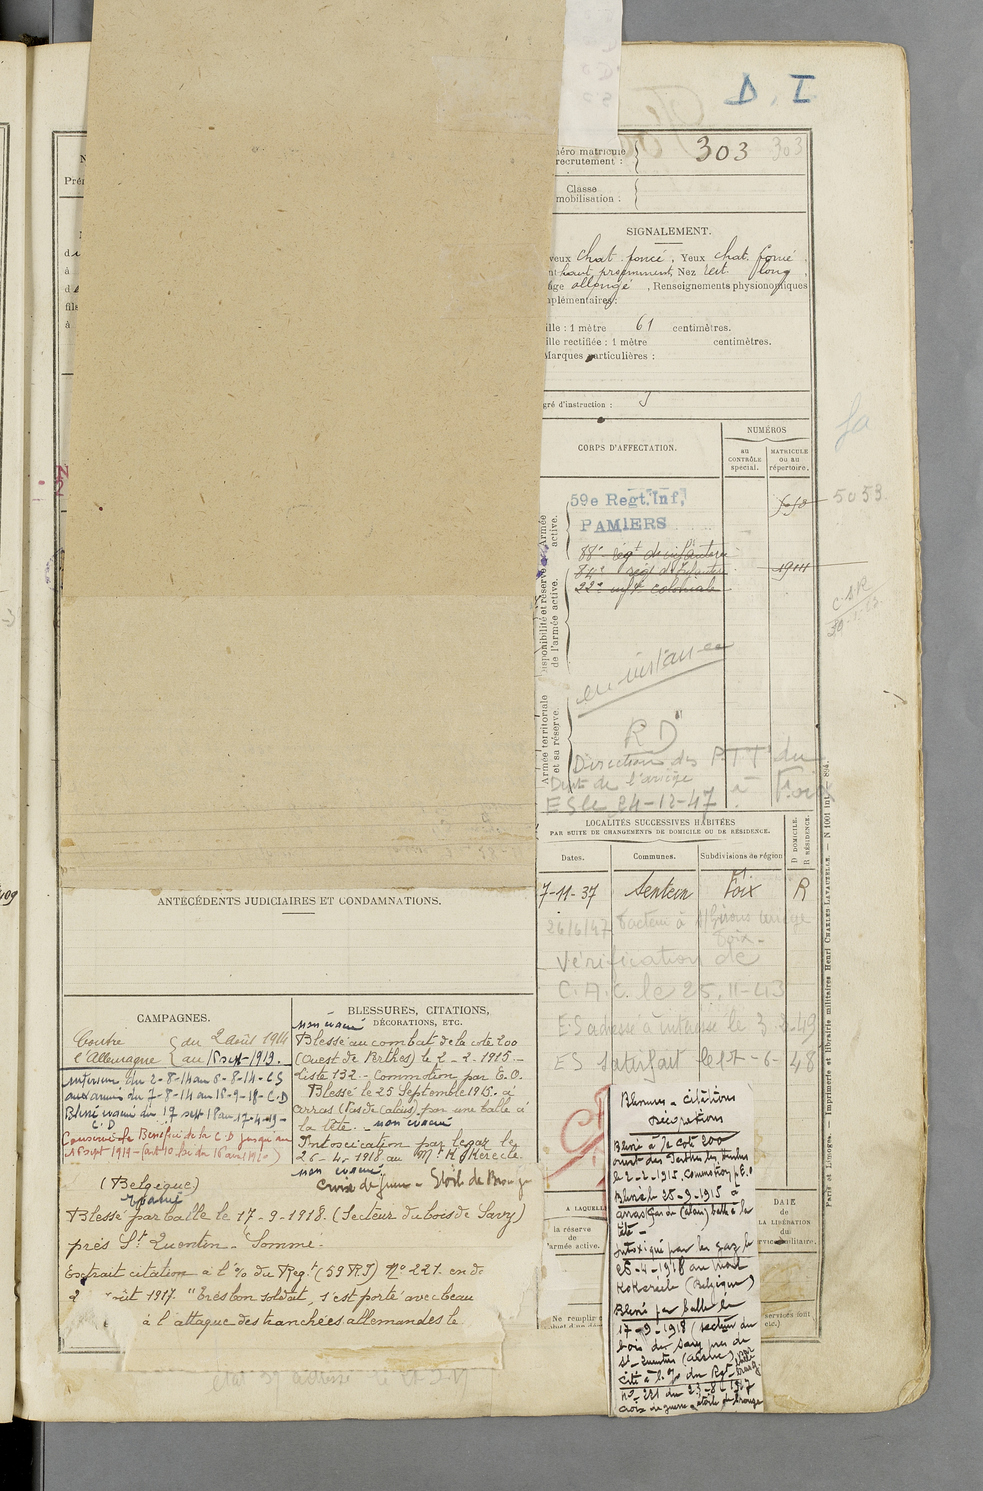 D. I
éro matricule
recrutement :
303
303
Classe
mobilisation :
SIGNALEMENT.
veux chat. foncé, Yeux chat. foncé
haut, proéminent, Nez rect. long,
age allongé, Renseignements physionomiques
plémentaires :
ille : 1 mètre 61 centimètres.
ille rectifiée : 1 mètre centimètres.
Marques particulières :
gré d'instruction : 3
CORPS D'AFFECTATION.
NUMÉROS
au
CONTRÔLE
spécial.
MATRICULE
ou au
répertoire.
Armée
active.
59e Regt. Inf.
PAMIERS
5053
88e régt d'infanterie
84e régt d'Infanterie
22e inft coloniale
Disponibilité et réserve
de l'armée active.
en instance
Armée territoriale
et sa réserve.
R D
Direction des PTT du
Dept de l'ariège à Foix
ES le 24-12-47
LOCALITÉS SUCCESSIVES HABITÉES
PAR SUITE DE CHANGEMENTS DE DOMICILE OU DE RÉSIDENCE.
Dates.
Communes.
Subdivisions de région
D DOMICILE.
R RÉSIDENCE.
7-11-37 Sentein Foix R
26/6/47 Facteur à St Girons
Foix
Vérification de
C.A.C. le 25.11-43
E.S adressé à intéressé le 3
ES Satisfait le 17-6-48
Paris et Limoges. — Imprimerie et librairie militaires Henri CHARLES-LAVAUZELLE. — N 1001 int
ANTÉCÉDENTS JUDICIAIRES ET CONDAMNATIONS.
CAMPAGNES.
Contre l'Allemagne du 2 août 1914
au 18 sept 1919.
Intérieur du 2-8-14 au 6-8-14 - C S
aux armées du 7-8-14 au 18-9-18 - C.D
Blessé évacué du 17 sept 18 au 17-4-19 -
C. D
Conserve le Bénéfice de la C.D jusqu'au
BLESSURES, CITATIONS,
DÉCORATIONS, ETC.
non évacué
Blessé au combat de la cote 200
(Ouest de Perthes) le 2-2-1915 -
Liste 132 - Commotion par E.O.
Blessé le 25 Septembre 1915 à
Arras (Pas de Calais) par une balle à
la tête. - non évacué
Intoxication par le gaz le
26-4-1918 au Mt Kokereele
non évacué
(Belgique)
Croix de Guerre - Etoile de Bronze
évacué
Blessé par balle le 17-9-1918. (Secteur du bois de Savy)
près St Quentin - Somme -
Extrait citation à l'% du Régt (59 RI) No 221 en d
2 août 1917. "Très bon soldat, s'est porté avec beau
à l'attaque des tranchées allemandes le
A LAQUELLE
la réserve
de
l'armée active.
DATE
de
LA LIBÉRATION
du
service militaire.
Ne remplir
services sont
etc.)
Blessures - citations
Décorations
Blessé à la cote 200
ouest des Perthes les Hurlus
le 2-2-1915. Commotion p. E.O
Blessé le 25-9-1915 à
Arras (Pas de Calais) balle à la
tête -
Intoxiqué par les gaz le
25-4-1918 au Mont
Kokereele (Belgique)
Blessé par balle le
17-9-1918 (secteur du
bois du Savy près de
St-Quentin (Aisne)
Cité à l'% du Rgt
no 221 du 27-8-1917
croix de guerre étoile de bronze